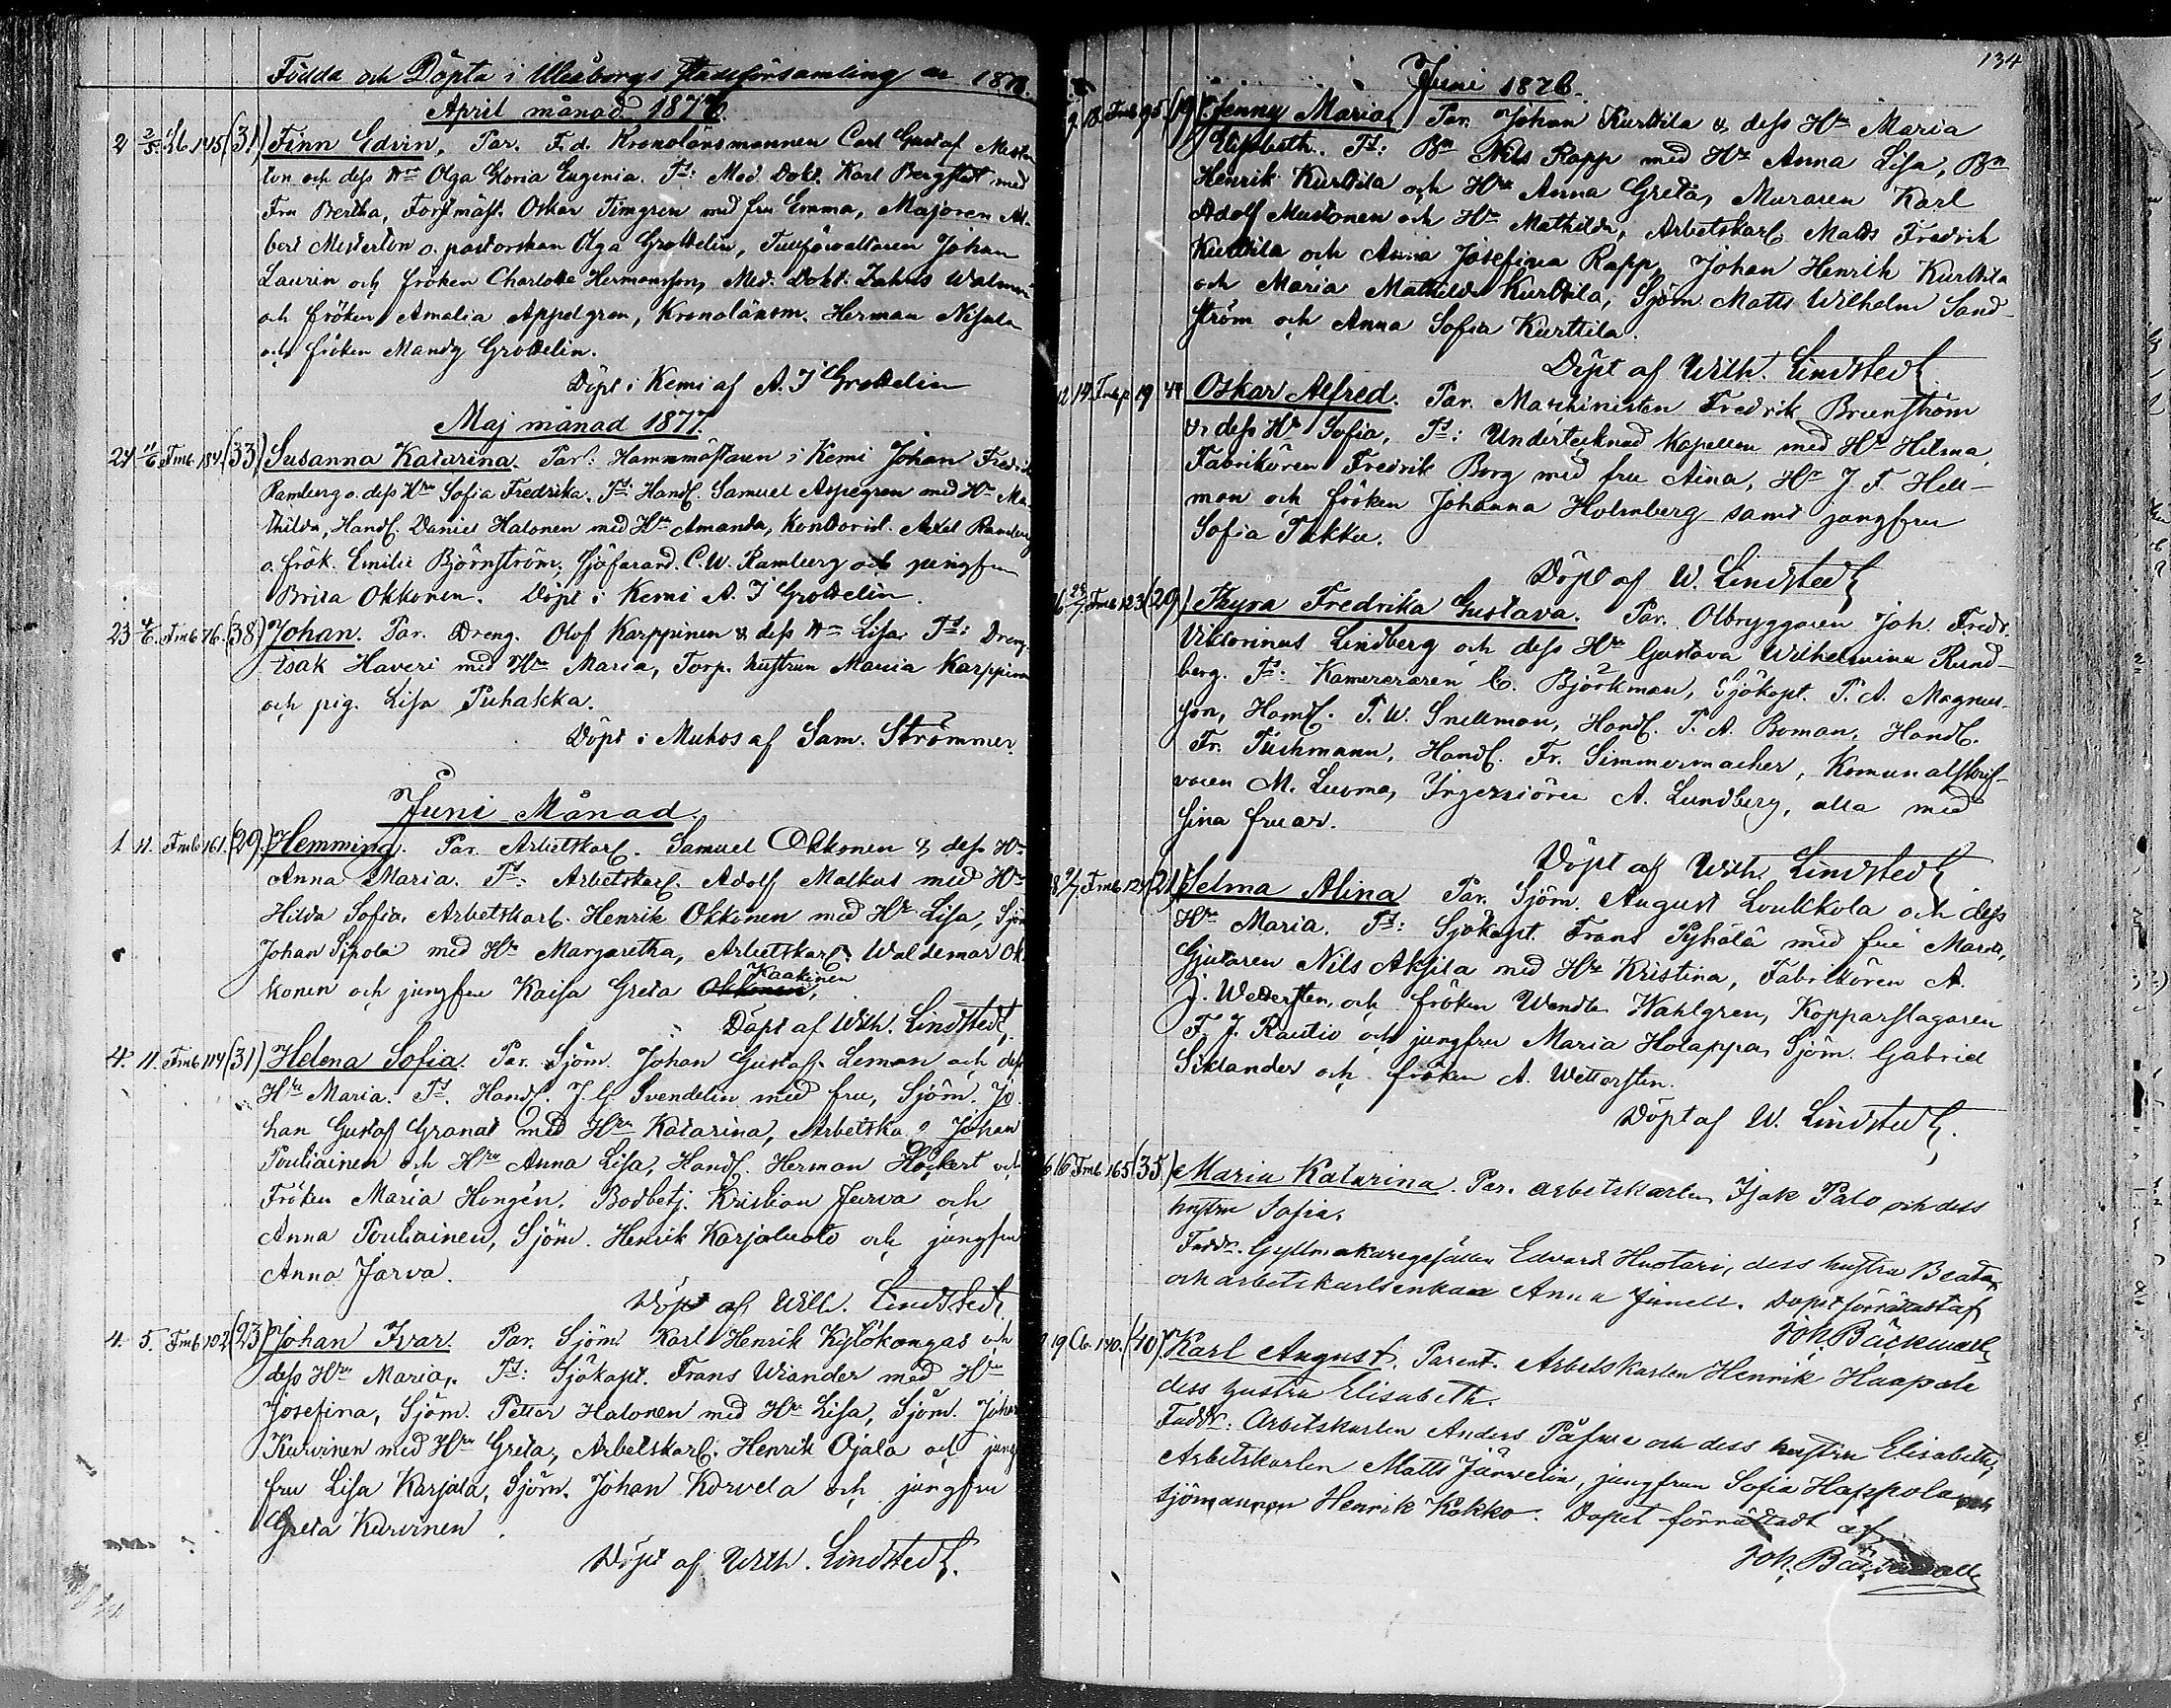 Födda och Döpta i Uleåborgs stadsförsamling år 1876.
April månad 1876.
2 2/5 Lb 145 (31) Finn Edvin. Par. F.d. Kronolänsmannen Carl Gustaf Mester
ton och dess Hru Olga Gloria Eugenia. Ts: Med. Dokt. Karl Bergstedt med
Fru Bertha, Forstmäst. Oskar Timgren med fru Emma, Majoren Al-
bert Mesterton o. pastorskan Olga Grottelin, Tullförvaltaren Johan
Laurin och fröken Charlotte Hermansson, Med. Dokt. Zakris Walmari
och fröken Amalia Appelgren, Kronolänsm. Herman Nisula
och fröken Mandy Grottelin.
Döpt i Kemi af A. I Grottelin
Maj månad 1877.
24 11/6 Fmb. 184. (33) Susanna Katarina. Par: Hammästaren i Kemi Johan Fredrik
Ramberg o. dess Hru Sofia Fredrika. Ts: Handl. Samuel Aspegren med Hru Ma-
thilda, Handl. Daniel Halonen med Hru Amanda, Kontorist. Axel Ramberg
o. frök. Emilie Björnström, Sjöfarand. C. W. Ramberg och jungfru
Brita Okkonen. Döpt i Kemi A. I Grottelin.
23 4/6. Fmb 76. (38) Johan. Par. Dreng. Olof Karppinen & dess Hru Lisa Ts: Dreng.
Isak Haveri med Hru Maria, Torp. hustrun Maria Karppinen
och pig. Lisa Puhakka.
Döpt i Muhos af Sam. Strömmer.
Juni Månad.
1 11. Fmb 161. (29) Hemming. Par. Arbetskarl. Samuel Okkonen & dess Hru
Anna Maria. Ts: Arbetskarl. Adolf Malkus med Hru
Hilda Sofia, Arbetskarl. Henrik Okkonen med Hru Lisa, Sjöm
Johan Sipola med Hru Margaretha, Arbetskarl. Waldemar Ok-
konen och jungfru Kaisa Greta Okkonen, Kaakinen
Döpt af Wilh. Lindstedt.
4. 11. Fmb 114 (31) Helena Sofia. Par. Sjöm. Johan Gustaf Leman och dess
Hru Maria. Ts. Handl. J. G. Svendelin med fru, Sjöm. Jo-
han Gustaf Granat med Hru Katarina, Arbetska. Johan
Pouliainen och Hru Anna Lisa, Handl. Herman Höckert och
Fröken Maria Hongén, Bodbetj. Kristian Jurva och
Anna Pouliainen, Sjöm. Henrik Karjaluoto och jungfru
Anna Jarva.
Döpt af Wilh. Lindstedt.
4. 5. Fmb 102 (23) Johan Ivar. Par. Sjöm Karl Henrik Kylökangas och
dess Hru Maria. Ts: Sjökapt. Frans Wiander med Hru
Josefina, Sjöm. Petter Halonen med Hru Lisa, Sjöm. Johan
Kurvinen med Hru Greta, Arbetskarl. Henrik Ojala och jung
fru Lisa Karjala, Sjöm. Johan Korvela och jungfru
Greta Kurvinen.
Döpt af Wilh. Lindstedt.
134
Juni 1876.
7. 18. Fmb 95. (19) Jenny Maria Par. Johan Kurttila & dess Hru Maria
Elisabeth. Ts: Bn Nils Rapp med Hru Anna Lisa, Bn
Henrik Kurttila och Hru Anna Greta, Muraren Karl
Adolf Mustonen och Hru Mathilda, Arbetskarl. Matts Fredrik
Kurttila och Anna Josefina Rapp, Johan Henrik Kurttila
och Maria Mathilda Kurttila, Sjöm Matts Wilhelm Sand-
ström och Anna Sofia Kurttila.
Döpt af Wilh. Lindstedt
12 14. Fmb p. 19 44 Oskar Alfred. Par. Maskinisten Fredrik Brunström
& dess Hru Sofia, Ts: Undertecknad Kapellan med Hru Hilma,
Fabrikören Fredrik Borg med fru Aina, Hr J. F. Hell-
man och fröken Johanna Holmberg samt jungfru
Sofia Tukku.
Döpt af W. Lindstedt
6 23/7 Fmb 123 (29) Thyra Fredrika Gustava. Par. Ölbryggaren Joh. Fredr.
Viktorinus Lindberg och dess Hru Gustava Wilhelmina Rund-
berg. Ts: Kamreraren C. Björkman, Sjökapt. P. A. Magnus-
son, Handl. P. W. Snellman, Handl. P. A. Boman, Handl.
Fr. Tuchmann, Handl. Fr. Simmermacher, Komunalskrif-
varen M. Luoma, Ingeniören A. Lundberg, alla med
sina fruar.
Döpt af Wilh. Lindstedt
8 9/7 Fmb 124 (21) Selma Alina Par. Sjöm. August Loukkola och dess
Hru Maria. Ts: Sjökapt. Frans Pyhälä med fru Maria,
Gjutaren Nils Aksila med Hru Kristina, Fabrikören A.
J. Wettersten och fröken Wendla Wahlgren, Kopparslagaren
F. J. Rautio och jungfru Maria Holappa, Sjöm. Gabriel
Siklander och fröken A. Wettersten.
Döpt af W. Lindstedt.
6 16 Fmb 165 (35) Maria Katarina. Par. arbetskarlen Isak Palo och dess
hustru Sofia.
Faddr. Gyllmakaregesällen Edvard Huotari, dess hustru Beata,
och arbetskarlsenkan Anna Junell. Dopet förrättadt af
Joh. Bäckwall
19 Cb. 140. (40) Karl August. Parent. Arbetskarlen Henrik Haapala
dess hustru Elisabeth.
Faddr: Arbetskarlen Anders Påfwe och dess hustru Elisabeth,
Arbetskarlen Matts Järwelin, jungfrun Sofia Happola och
sjömannen Henrik Kokko. Dopet förrättadt af
Joh. Bäckwall